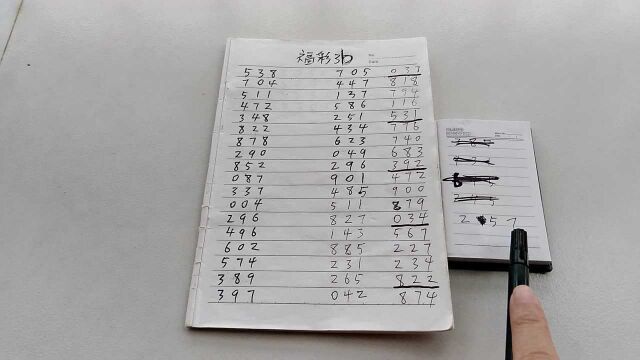 福彩3D
538 705 037
704 447 818
511 137 794
472 586 116
348 251 531
822 434 776
878 623 740
290 049 683
852 296 392
087 901 472
337 485 900
004 511 879
296 827 034
496 143 567
602 885 227
574 231 234
389 265 822
397 042 874
2 57